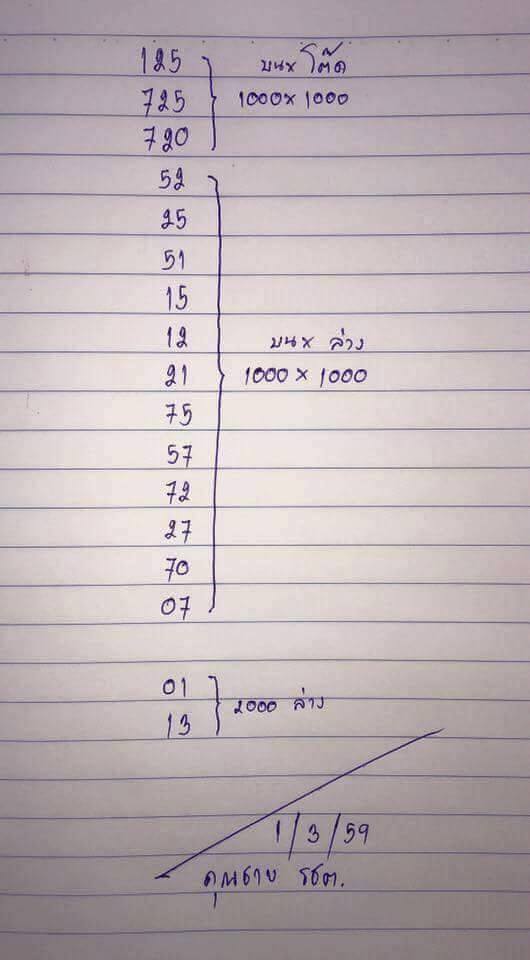 125
บน x โต๊ด
725
1000 x 1000
720
52
25
51
15
12
บน x ล่าง
21
1000 x 1000
75
57
72
27
70
07
01
2000 ล่าง
13
1/3/59
คุณชาย รชต.